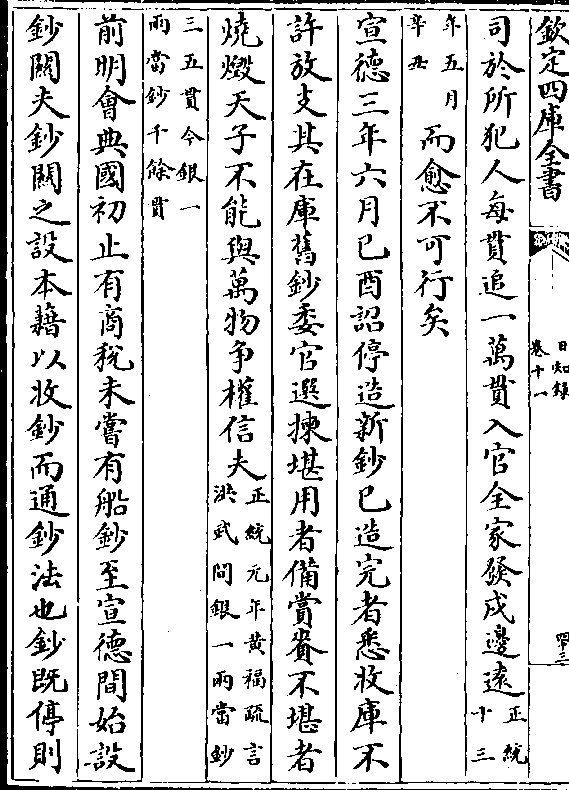 欽定四庫全書
日知錄
卷十一
四十三
司於所犯人每貫追一萬貫入官全家發戍邊遠正統十三
年五月辛丑而愈不可行矣
宣德三年六月己酉詔停造新鈔已造完者悉收庫不
許放支其在庫舊鈔委官選揀堪用者備賞賚不堪者
燒燬天子不能與萬物争權信夫正統元年黄福疏言洪武間銀一兩當鈔
三五貫今銀一兩當鈔千餘貫
前明會典國初止有商稅未嘗有船鈔至宣德間始設
鈔關夫鈔關之設本藉以收鈔而通鈔法也鈔既停則